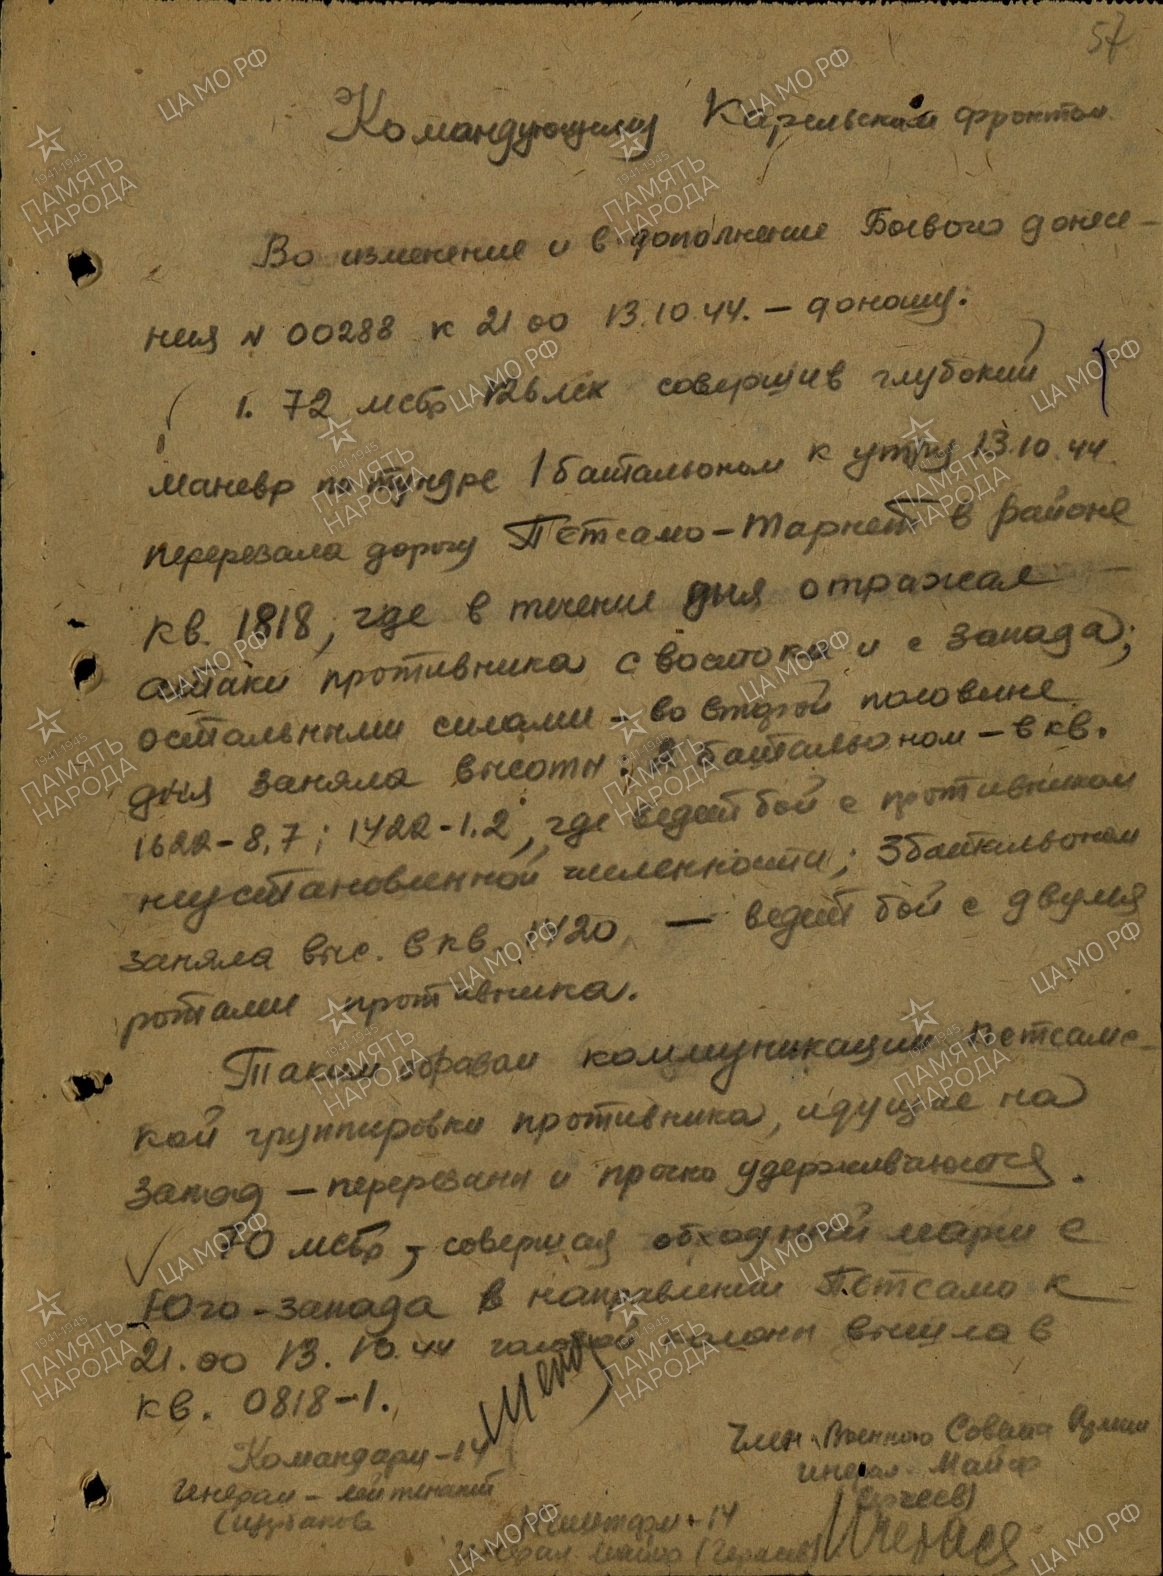 57
Командующему Карельским фронтом.
Во изменение и в дополнение Боевого донесе-
ния № 00288 к 21 00 13.10.44. – доношу:
1. 72 мсбр 126 лск совершив глубокий
маневр по тундре 1 батальоном к утру 13.10.44
перерезала дорогу Петсамо – Тарнет в районе
кв. 1818, где в течение дня отражал
атаки противника с востока и с запада;
остальными силами – во второй половине
дня заняла высоты: 2 батальоном – в кв.
1622-8,7; 1422-1.2, где ведет бой с противником
неустановленной численности; 3 батальоном
заняла выс. в кв. 1420, – ведет бой с двумя
ротами противника.
Таким образом коммуникации Петсамс-
кой группировки противника, идущие на
запад – перерезаны и прочно удерживаются.
70 мсбр, совершая обходный марш с
Юго-запада в направлении Петсамо к
21.00 13.10.44 головой колоны вышла в
кв. 0818-1.
Командарм-14
Член Военного Совета Армии
генерал-лейтенант
генерал-майор
(Щербаков
(Сергеев)
Наштарм-14
генерал майор (Герасев)
ЦА МО РФ
1941-1945
ПАМЯТЬ
НАРОДА